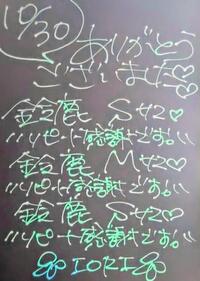 10/30
ありがとう
ございました♡
鈴鹿 Sサマ♡
リピート感謝です。
鈴鹿 Mサマ♡
リピート感謝です。
鈴鹿 Sサマ♡
リピート感謝です。
IORI